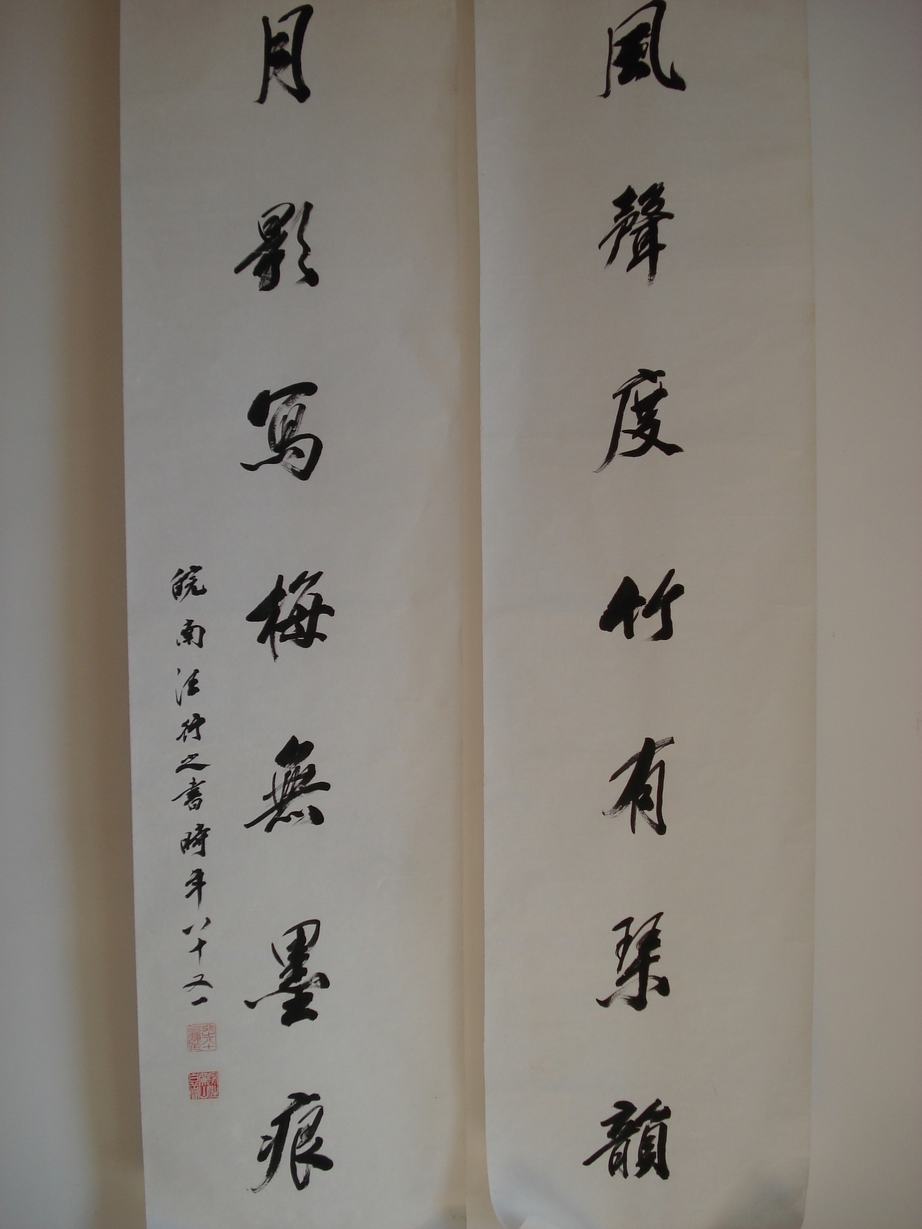 風聲度竹有琴韻
月影寫梅無墨痕
皖南汪行之書時年八十又一